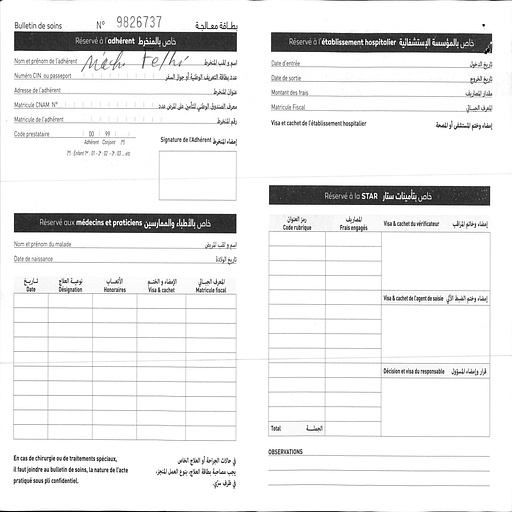 Bulletin de soins N° 9826737 بطاقة معالجة
Réservé à l'adhérent خاص بالمنخرط
Nom et prénom de l'adhérent Fethi اسم و لقب المنخرط
Numéro CIN ou passeport عدد بطاقة التعريف الوطنية أو جواز السفر
Adresse de l'adhérent عنوان المنخرط
Matricule CNAM N° معرف الصندوق الوطني للتأمين على المرض عدد
Matricule de l'adhérent رقم المنخرط
Code prestataire 00 99 (*)
Adhérent Conjoint
(*) : Enfant 1er : 01 - 2e : 02 - 3e : 03 ... etc
Signature de l'Adhérent إمضاء المنخرط
Réservé aux médecins et praticiens خاص بالأطباء والممارسين
Nom et prénom du malade اسم و لقب المريض
Date de naissance تاريخ الولادة
تاريخ نوعية العلاج الأتعاب الإمضاء و الختم المعرف الجبائي
Date Désignation Honoraires Visa & cachet Matricule fiscal
En cas de chirurgie ou de traitements spéciaux,
il faut joindre au bulletin de soins, la nature de l'acte
pratiqué sous pli confidentiel.
في حالات الجراحة أو العلاج الخاص
يجب مصاحبة بطاقة العلاج، بنوع العمل المنجز،
في ظرف سري.
Réservé à l'établissement hospitalier خاص بالمؤسسة الإستشفائية
Date d'entrée تاريخ الدخول
Date de sortie تاريخ الخروج
Montant des frais مقدار المصاريف
Matricule Fiscal المعرف الجبائي
Visa et cachet de l'établissement hospitalier إمضاء وختم المستشفى أو المصحة
Réservé à la STAR خاص بتأمينات ستار
رمز العنوان المصاريف
Code rubrique Frais engagés
Visa & cachet du vérificateur إمضاء وخاتم المراقب
Visa & cachet de l'agent de saisie إمضاء وختم الضبط الآلي
Décision et visa du responsable قرار وإمضاء المسؤول
Total الجملة
OBSERVATIONS